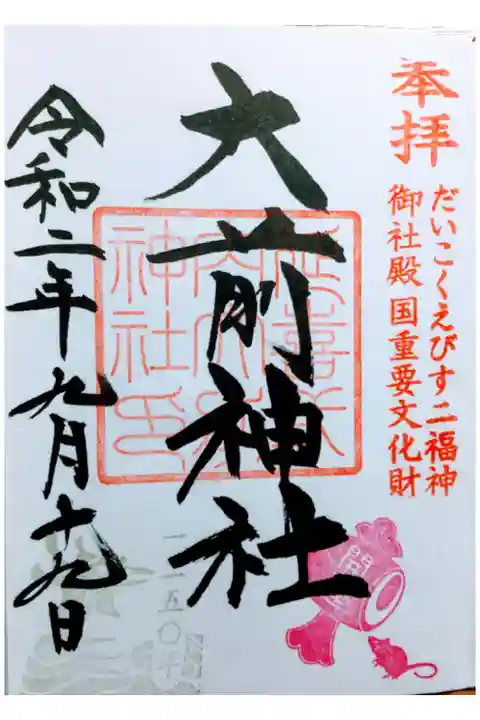 奉拝
だいこくえびす二福神
御社殿 国重要文化財
大前神社
令和二年九月十九日
一二五〇年